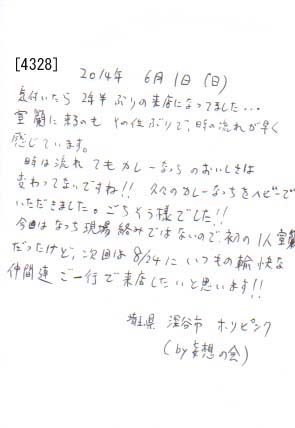 [4328]
2014年 6月1日(日)
気付いたら 2年半ぶりの来店になってました...
室蘭に来るのも その位ぶりで、時の流れが早く
感じています。
時は流れてもカレーなっちのおいしさは
変わってないですね!! 久々のカレーなっちをヘビーで
いただきました。ごちそう様でした!!
今回はなっち現場絡みではないので、初の1人室蘭
だったけど、次回は8/24にいつもの愉快な
仲間達 ご一行で来店したいと思います!!
埼玉県 深谷市 ホリピンク
(by妄想の会)